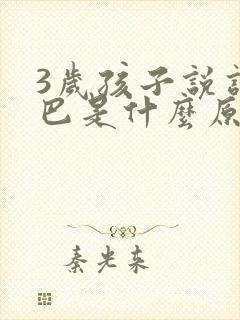 3歲孩子說
巴是什麼原
秦光来